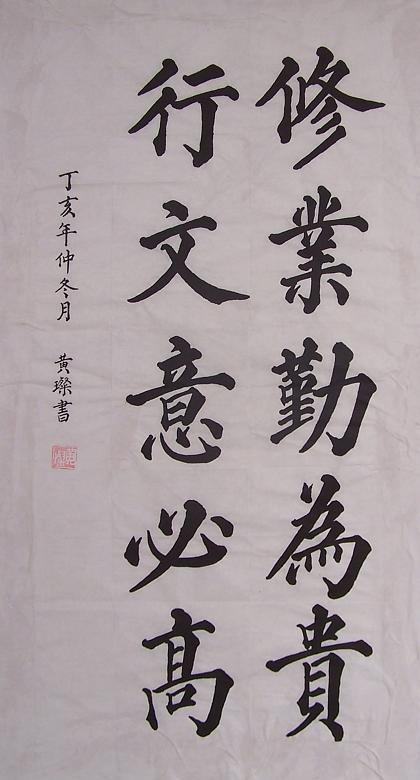 修業勤為貴
行文意必高
丁亥年仲冬月 黄璨書